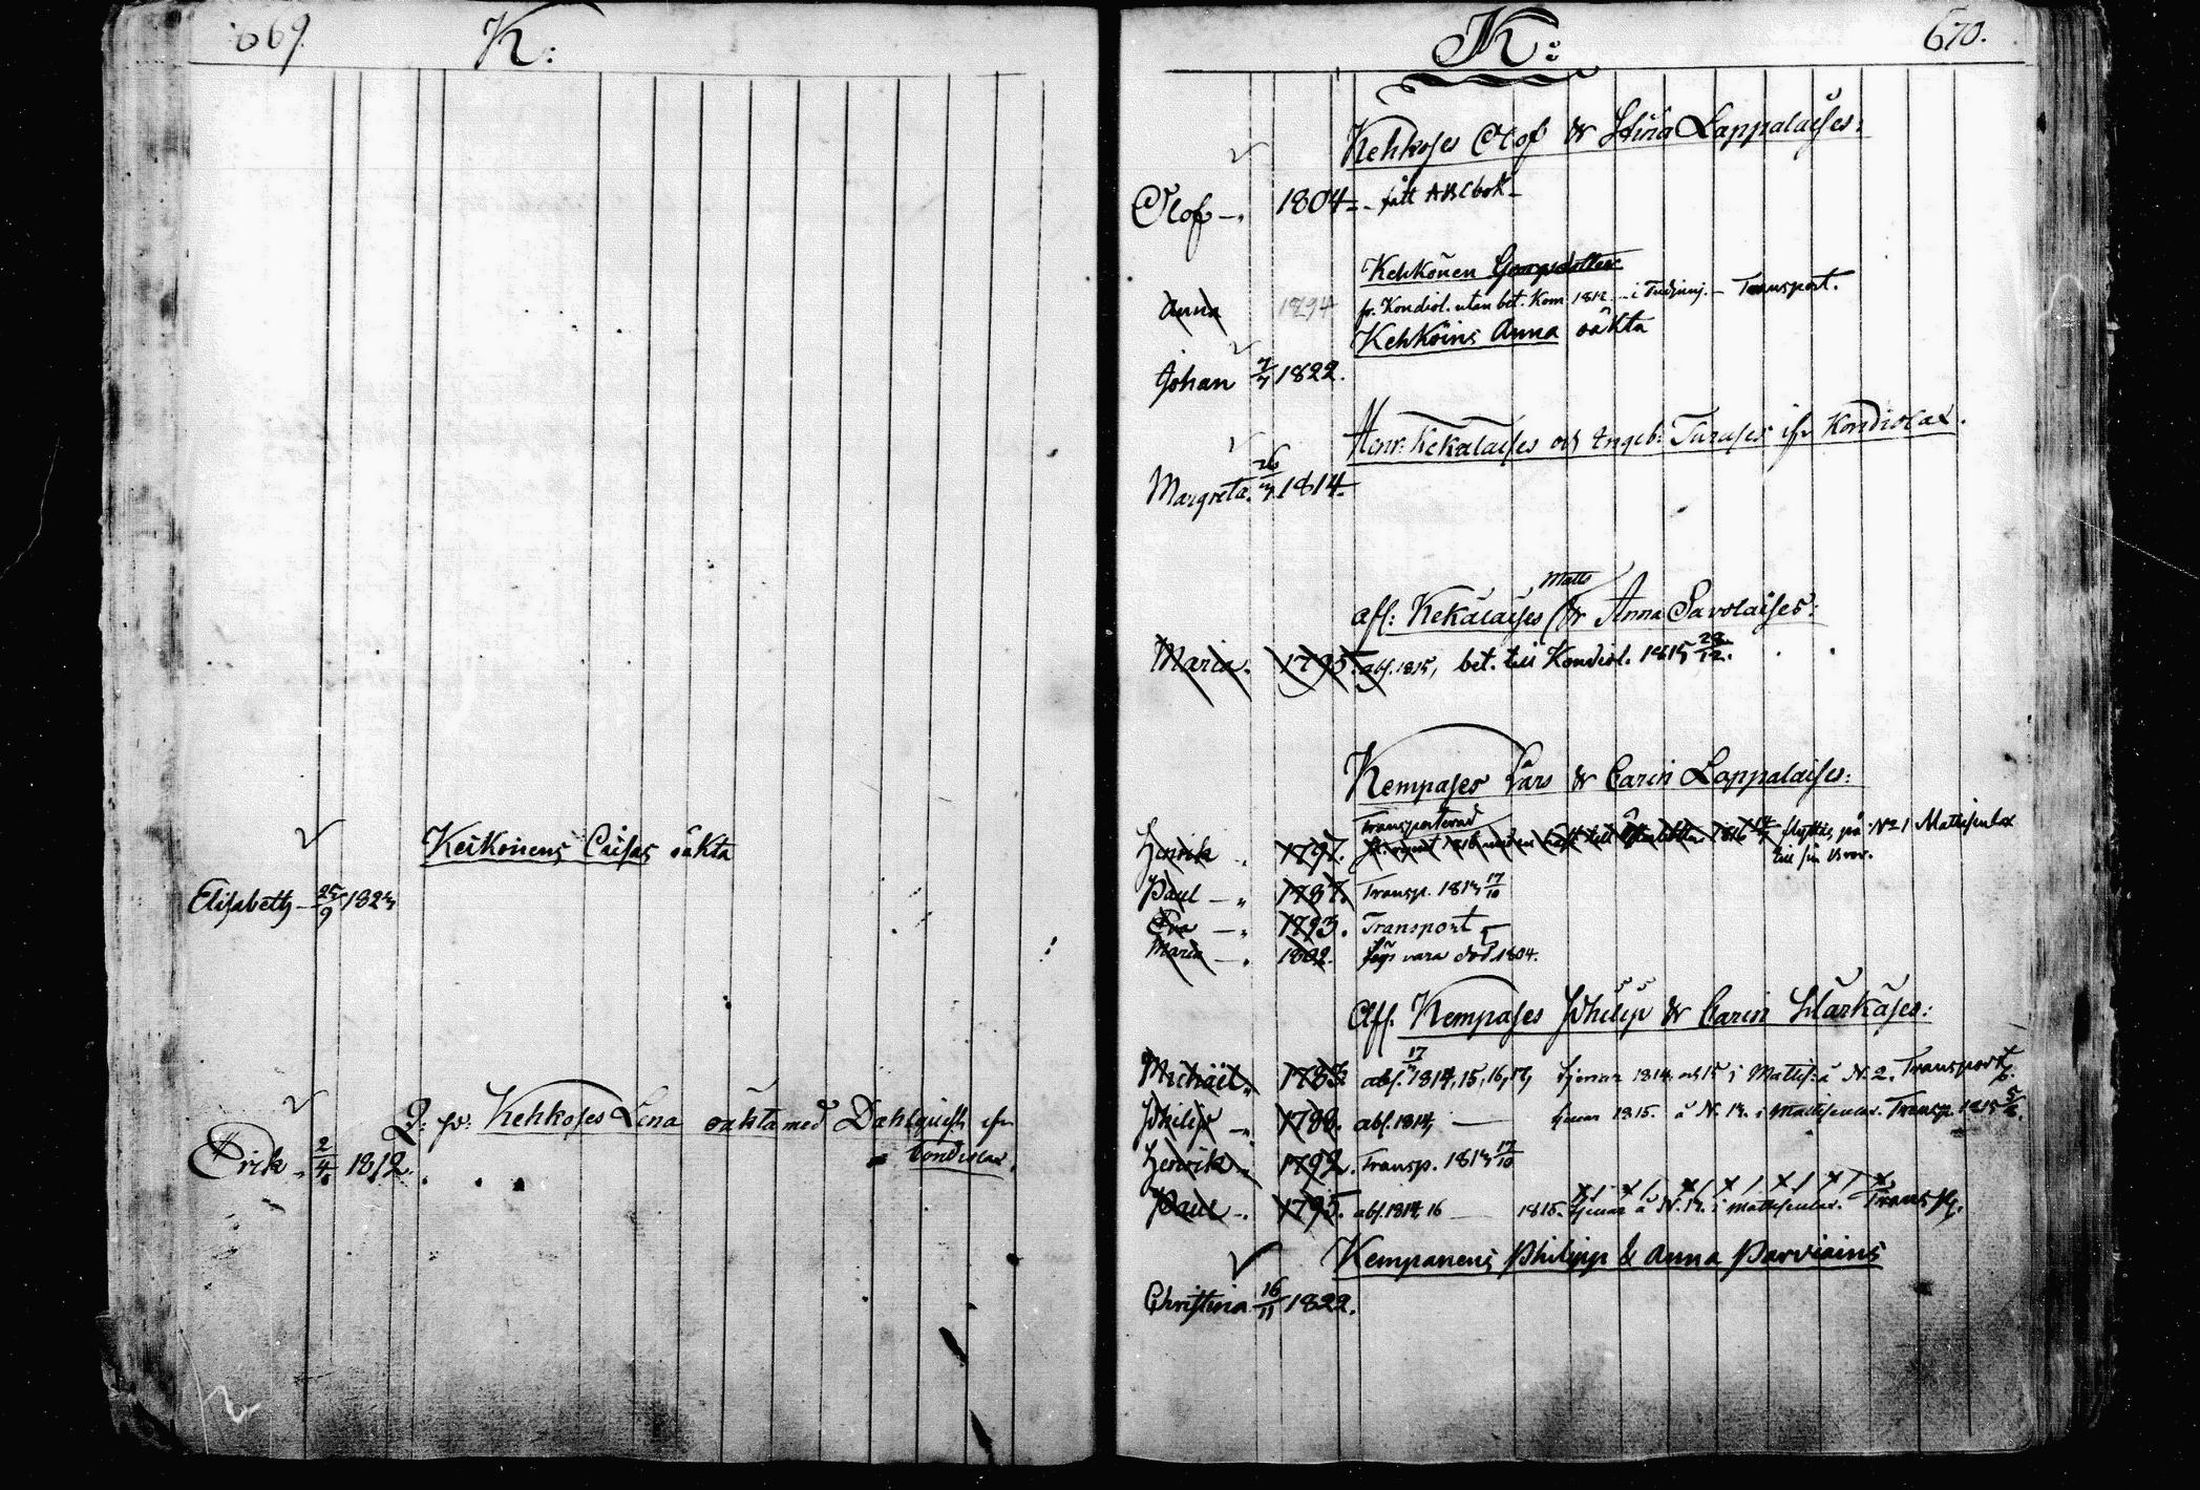 669. K:
Keikoinens Caisas oäkta
Elisabeth - 25/9 1823
Q: p: Kehkoses Lena oäkta med Dahlquist ifr
Condiolax.
Erik - 2/4 1812.
K: 670.
Kehkoses Olof & Stina Lappalaises:
Olof - 1804 - fått ABCbok -
Kehkonen
Anna 1794 fr. Kondiol. utan bet. Kom 1812 - i - Transport.
Kehkoins Anna oäkta
Johan 7/7 1822.
Henr: Kekalaises och Ingeb: Turuses ifr Kondiolax.
Margreta. 26/3 1814.
Matts
aff: Kekalaises & Anna Savolaises:
Maria. 1795. abs. 1815, bet. till Kondiol. 1815 28/12.
Kempases Lars & Carin Lappalaises:
Transporterad
Henrik 1797. flyttis på No 1 Mattisenlax
till sin
Paul - " 1787. Transp. 1813 17/10
Eva - " 1793. Transport
Maria - " 1802. säges vara död 1804.
Aff. Kempases Philip & Carin Starkases:
Michäel. 1783. abs. 1814, 15, 16, 17, tjenar 1814 och 15 i Mattis: å N. 2. Transport
Philip - 1788. abs. 1814, - tjenar 1815. å N. 13. i Mattisenlax. Transp. 1815
Henrik. 1792. Transp. 1813 17/10
Paul - 1795. abs. 1814, 16 - 1815. tjenar å N. 13. i Mattisenlax. Transp.
Kempanens Philipp & Anna Parviains
Christina 16/11 1822.